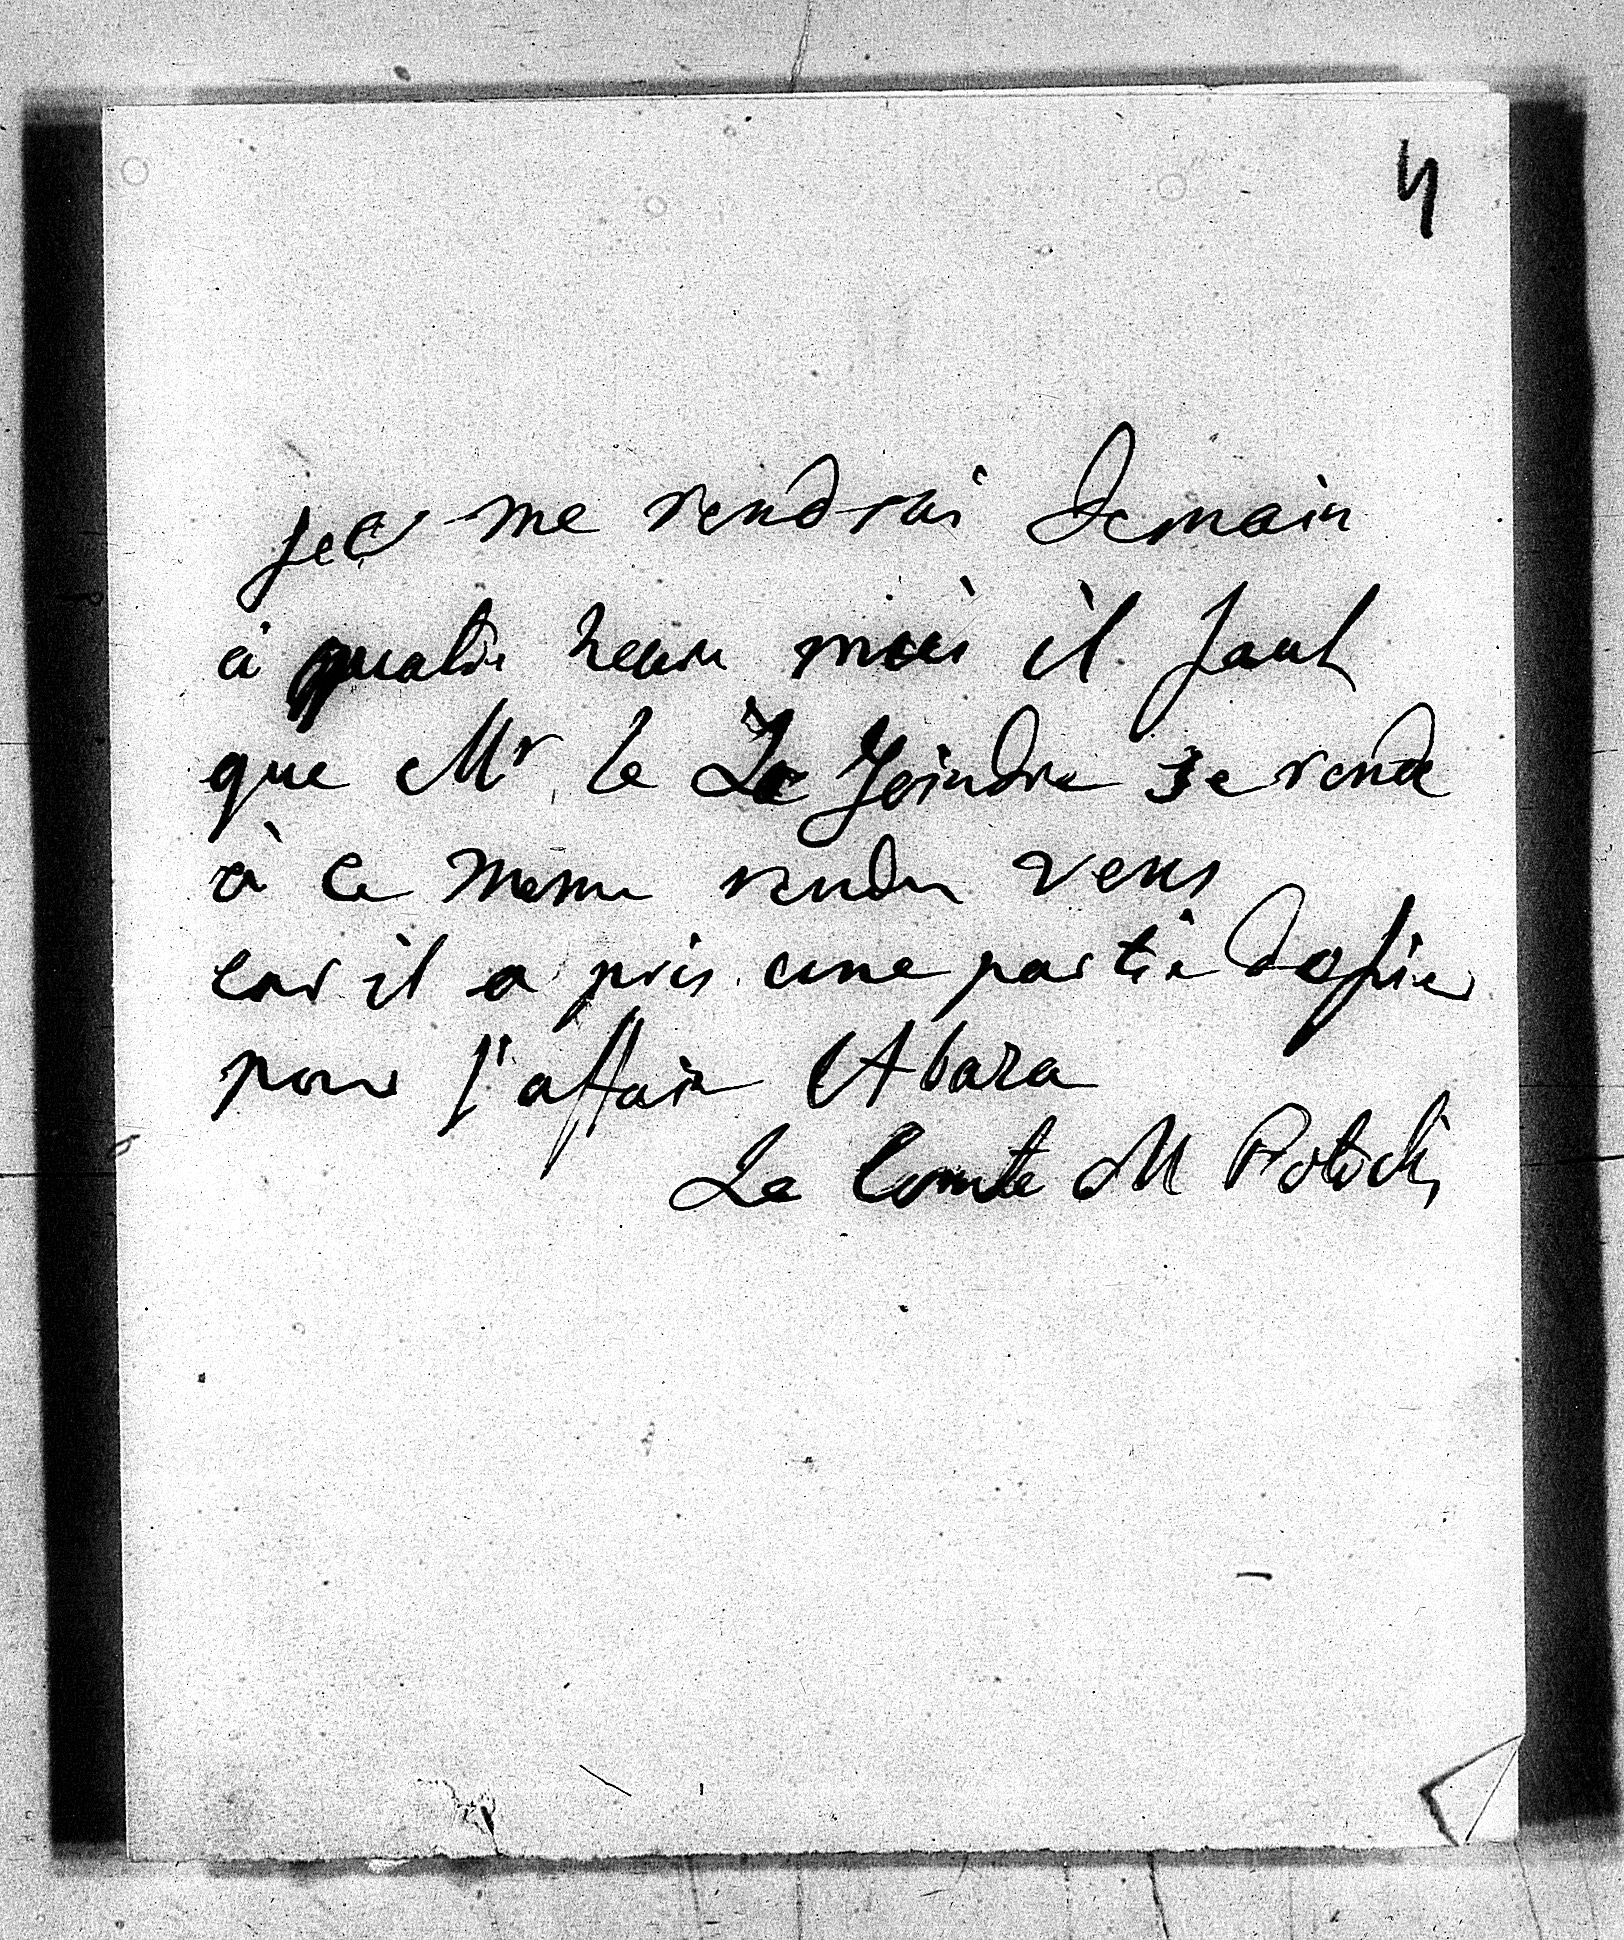 4
je me rendrai demain
à quatre heure mais il faut
que Mr le Le Joindre se rende
à ce meme rendez vous
car il a pris une partie
pour l'affaire Abaza
Le Comte M Potocki